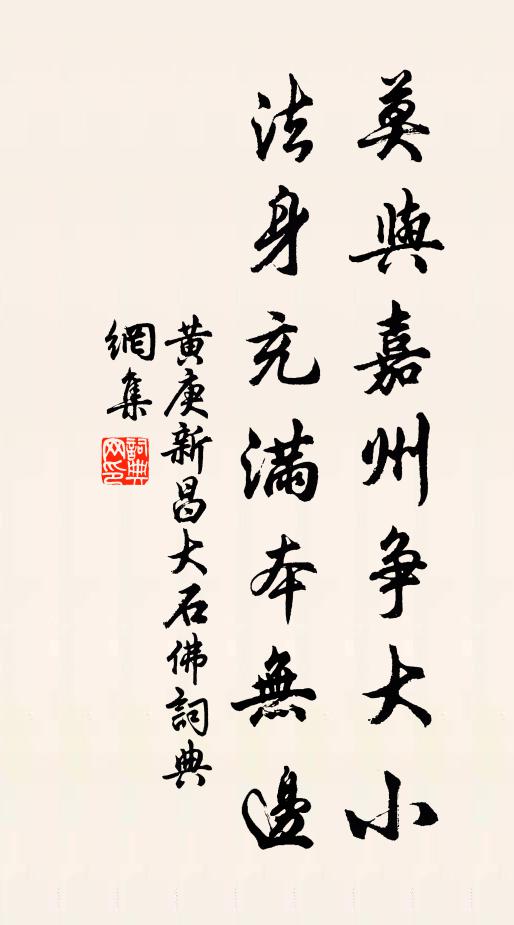 莫與嘉州争大小
法身充滿本無邊
黄庚新昌大石佛詞典
網集
詞典
网印